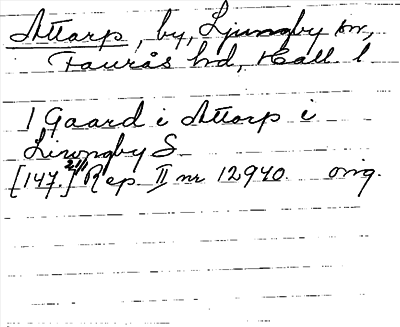 Attarp, by, Ljungby sn,
Faurås hd, Hall l
1 Gaard i Attorp i
Liwngby S
[147.] 2/11 Rep II nr 12940. orig.